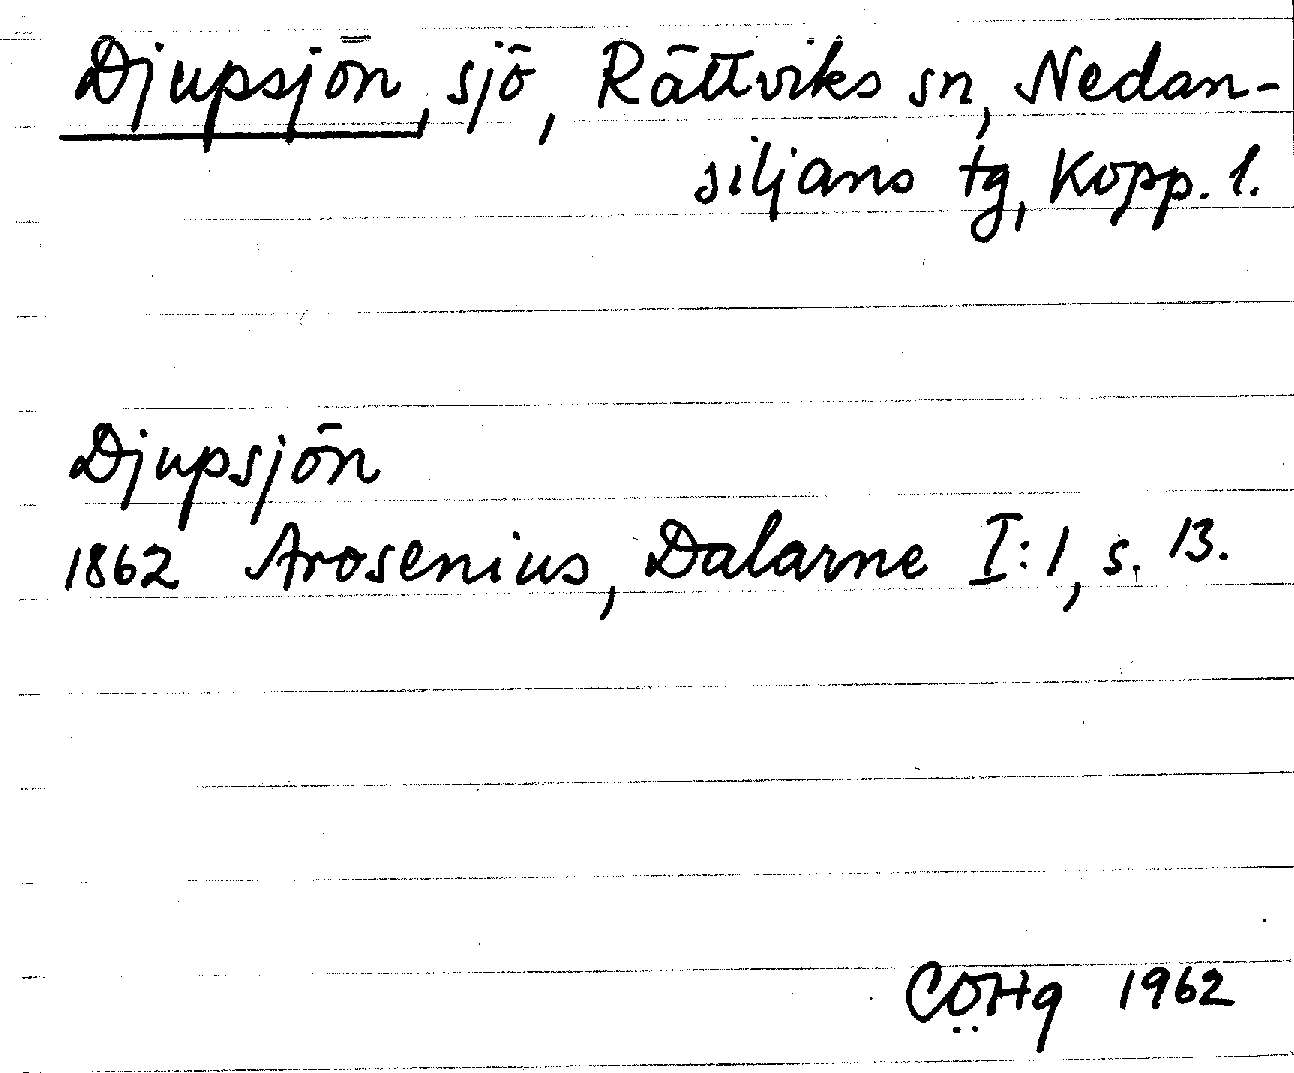 Djupsjön, sjö, Rättviks sn, Nedan-
siljans tg, Kopp. l.
Djupsjön
1862 Arosenius, Dalarne I:1, s. 13.
CÖHg 1962